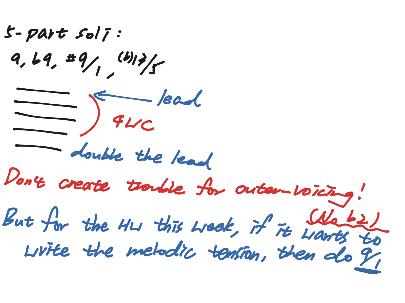 5-part soli:
9, b9, #9/1, (b)13/5
lead
4WC
double the lead
Don't create trouble for outer voicing!
(No b2)
But for the HW this week, if it wants to
write the melodic tension, then do 9/1